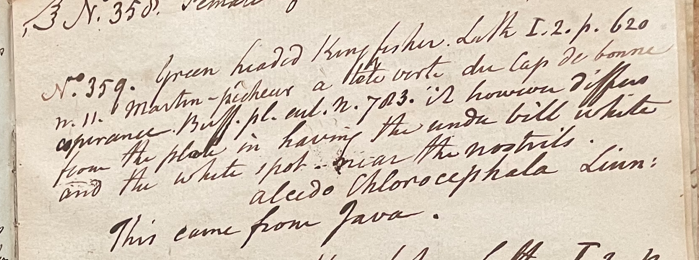 N. 358. Female
No. 359. Green headed Kingfisher. Lath I. 2. p. 620
n. 11. Martin-pêcheur a tête verte du Cap de bonne
esperance. Buff. pl. enl. n. 783. it however differs
from the plate in having the under bill white
and the white spot near the nostrils.
alcedo Chlorocephala Linn:
This came from Java.
I. 2. p.